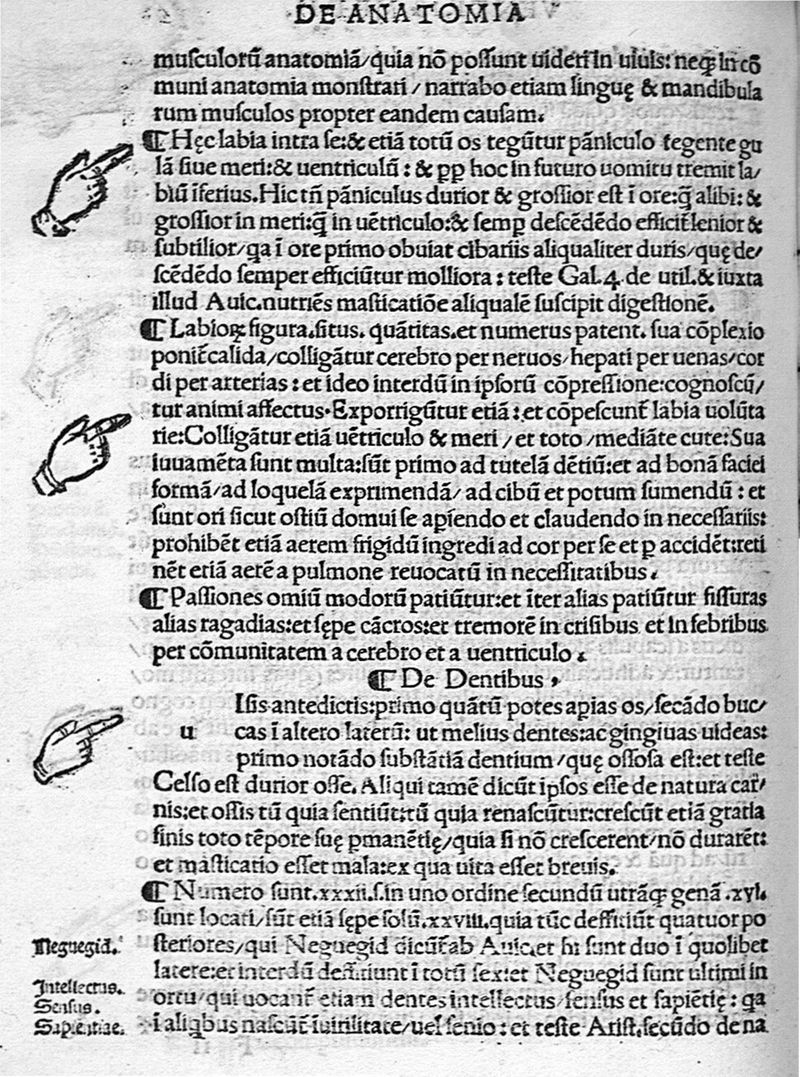 DE ANATOMIA
musculorū anatomiā/quia nō possunt uideri in uiuis: neqꝫ in cō
muni anatomia monstrari / narrabo etiam linguę & mandibula
rum musculos propter eandem causam.
¶ Hęc labia intra se:& etiā totū os tegūtur pāniculo tegente gu
lā siue meri:& uentriculū: & ꝓp hoc in futuro uomitu tremit la/
biū īferius. Hic tn̄ pāniculus durior & grossior est ī ore:q̄ alibi: &
grossior in meri:q̄ in uētriculo:& semꝑ descēdēdo efficit̄ lenior &
subtilior/qa ī ore primo obuiat cibariis aliqualiter duris/quę de/
scēdēdo semper efficiūtur molliora: teste Gal. 4. de util. & iuxta
illud Auic. nutriēs masticatiōe aliqualē suscipit digestionē.
¶ Labioꝝ figura. situs. quātitas. et numerus patent. sua cōplexio
ponit̄ calida/colligātur cerebro per neruos/hepati per uenas/cor
di per arterias: et ideo interdū in ipsorū cōpressione:cognoscū/
tur animi affectus. Exporrigūtur etiā: et cōpescunt̄ labia uolūta
rie: Colligātur etiā uētriculo & meri / et toto / mediāte cute: Sua
iuuamēta sunt multa: sūt primo ad tutelā dētiū: et ad bonā faciei
formā/ad loquelā exprimendā/ad cibū et potum sumendū: et
sunt ori sicut ostiū domui se aꝑiendo et claudendo in necessariis:
prohibēt etiā aerem frigidū ingredi ad cor per se et ꝑ accidēt: reti
nēt etiā aerē a pulmone reuocatū in necessitatibus.
¶ Passiones omiū modorū patiūtur: et īter alias patiūtur fissuras
alias ragadias: et sępe cācros: et tremorē in crisibus et in febribus
per cōmunitatem a cerebro et a uentriculo.
¶ De Dentibus.
u Isis antedictis: primo quātū potes aꝑias os/secādo buc/
cas ī altero laterū: ut melius dentes: ac gingiuas uideas:
primo notādo substātiā dentium / quę ossosa est: et teste
Celso est durior osse. Aliqui tamē dicūt ipsos esse de natura car/
nis: et ossis tū quia sentiūt: tū quia renascūtur: crescūt etiā gratia
finis toto tēpore suę ꝑmanētię/quia si nō crescerent/nō durarēt:
et masticatio esset mala: ex qua uita esset breuis.
¶ Numero sunt. xxxii. s. in uno ordine secundū utrāqꝫ genā. xyi.
sunt locati/ sūt etiā sępe solū. xxviii. quia tūc deffitiūt quatuor po
Neguegid. steriores/qui Neguegid dicūt̄ ab Auic. et hi sunt duo ī quolibet
latere: et interdū defitiunt ī totū sex: et Neguegid sunt ultimi in
Intellectus. ortu/qui uocant̄ etiam dentes intellectus/sensus et sapiētię: qa
Sensus.
Sapientiae. ī aliq̄bus nascūt̄ ī uirilitate/uel senio: et teste Arist. secūdo de na